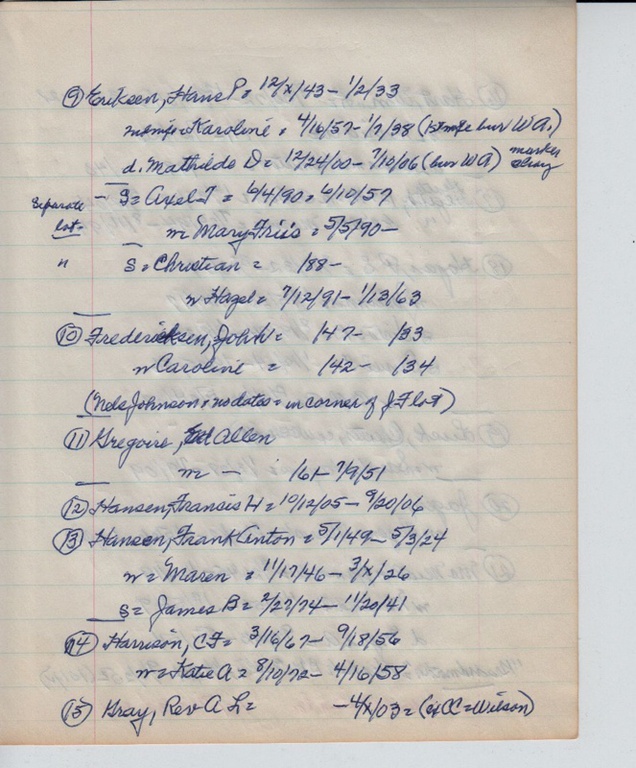 ⑨ Eriksen, Hans P = 12/x/43 - 1/2/33
Karoline = 4/16/57 - 1/7/38 (bur W A.)
d. Mathilde D = 12/24/00 - 7/10/06 (bur W A) marker
Separate - S = Axel T = 6/4/90 = 6/10/57
lot - m = Mary Friis = 5/5/90 -
" s = Christian = /88 -
w Hazel = 7/12/91 - 1/13/63
⑩ Fredericksen, John = /47 - /33
w Caroline = /42 - /34
(Nels Johnson = no dates = in corner of J F lot)
⑪ Gregoire, Allen
m - /61 - 7/9/51
⑫ Hansen, Francis H = 10/12/05 - 9/20/06
⑬ Hansen, Frank Anton = 5/1/49 - 5/3/24
w = Maren = 11/17/46 - 3/x/26
s = James B = 2/27/74 - 11/20/41
⑭ Harrison, C F = 3/16/67 - 9/18/56
w = Katie A = 8/10/72 - 4/16/58
⑮ Gray, Rev A L = - 4/x/03 = (CC = Wilson)